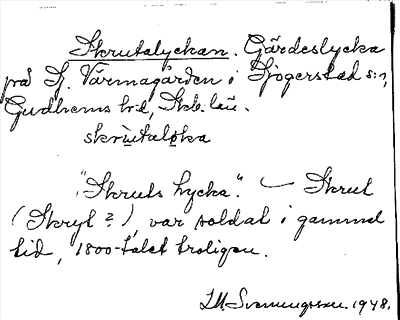 Skrutalyckan. Gärdeslycka
på S. Värmagården i Sjogerstad s:n,
Gudhems hd, Skb. län.
skru̲talo̲ka
"Skruts lycka". — Skrut
(Skryt?), var soldat i gammal
tid, 1800-talet troligen.
Svenungsson. 1948.